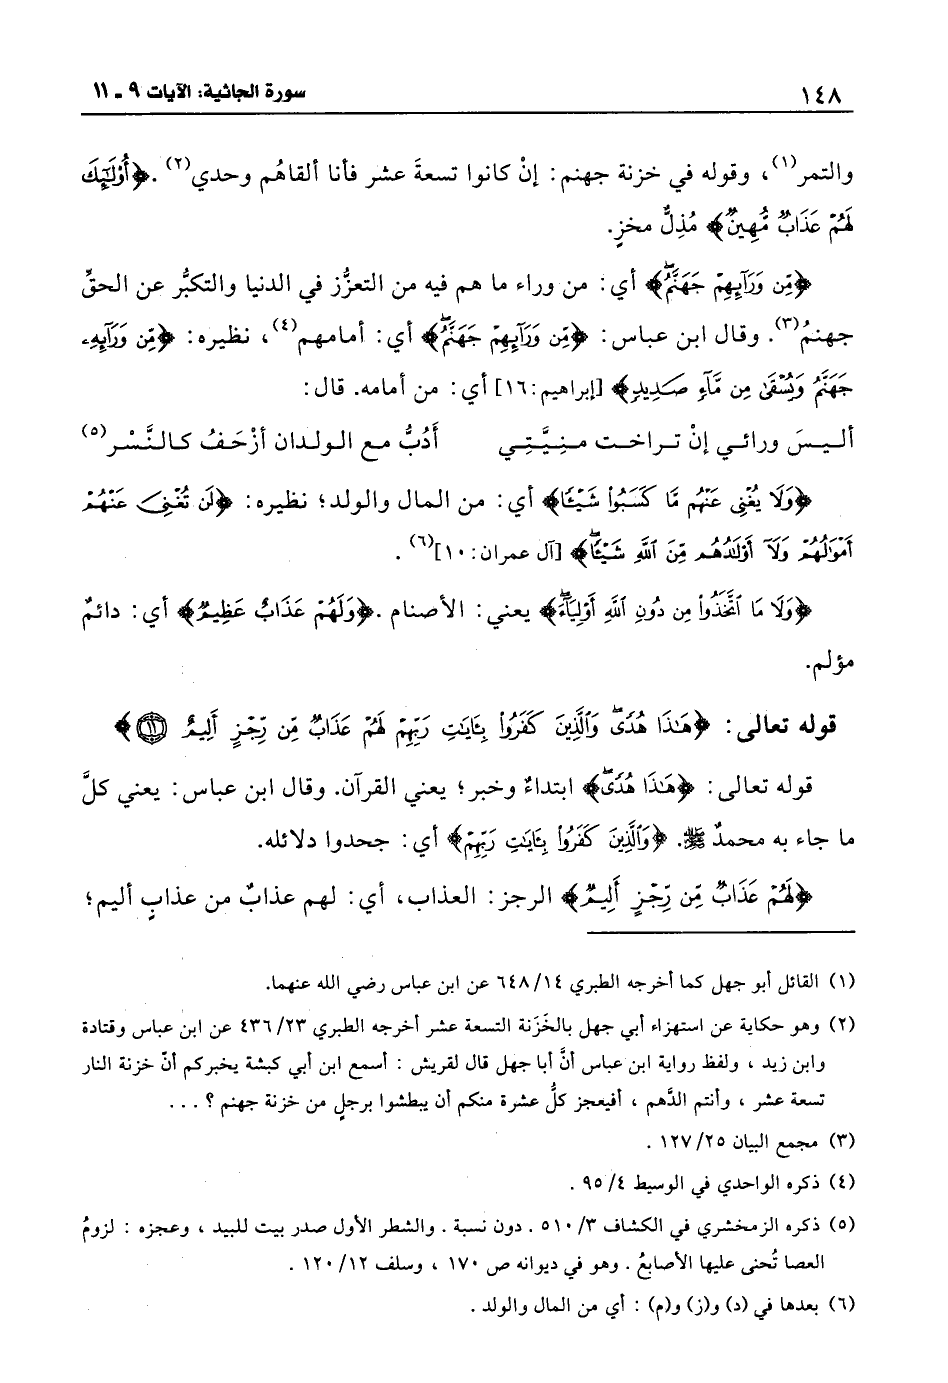 ١٤٨ سورة الجاثية: الآيات ٩ ـ ١١
والتمر(١)، وقوله في خزنة جهنم: إنْ كانوا تسعةَ عشر فأنا ألقاهُم وحدي(٢). ﴿أُوْلَٰٓئِكَ
لَهُمْ عَذَابٌ مُّهِينٌ﴾ مُذِلٌّ مخزٍ.
﴿مِّن وَرَآئِهِمْ جَهَنَّمُۖ﴾ أي: من وراء ما هم فيه من التعزُّز في الدنيا والتكبُّر عن الحقِّ
جهنمُ(٣). وقال ابن عباس: ﴿مِّن وَرَآئِهِمْ جَهَنَّمُۖ﴾ أي: أمامهم(٤)، نظيره: ﴿مِّن وَرَآئِهِۦ
جَهَنَّمُ وَيُسْقَىٰ مِن مَّآءٍ صَدِيدٍ﴾ [إبراهيم:١٦] أي: من أمامه. قال:
أليسَ ورائي إنْ تراخت منِيَّتِي أَدُبُّ مع الولدان أزْحَفُ كالنَّسْر(٥)
﴿وَلَا يُغْنِى عَنْهُم مَّا كَسَبُوا۟ شَيْـًٔا﴾ أي: من المال والولد؛ نظيره: ﴿لَن تُغْنِىَ عَنْهُمْ
أَمْوَٰلُهُمْ وَلَآ أَوْلَٰدُهُم مِّنَ ٱللَّهِ شَيْـًٔاۖ﴾ [آل عمران:١٠](٦).
﴿وَلَا مَا ٱتَّخَذُوا۟ مِن دُونِ ٱللَّهِ أَوْلِيَآءَۖ﴾ يعني: الأصنام. ﴿وَلَهُمْ عَذَابٌ عَظِيمٌ﴾ أي: دائمٌ
مؤلم.
قوله تعالى: ﴿هَٰذَا هُدًىۖ وَٱلَّذِينَ كَفَرُوا۟ بِـَٔايَٰتِ رَبِّهِمْ لَهُمْ عَذَابٌ مِّن رِّجْزٍ أَلِيمٌ ⑪﴾
قوله تعالى: ﴿هَٰذَا هُدًىۖ﴾ ابتداءٌ وخبر؛ يعني القرآن. وقال ابن عباس: يعني كلَّ
ما جاء به محمدٌ ﷺ. ﴿وَٱلَّذِينَ كَفَرُوا۟ بِـَٔايَٰتِ رَبِّهِمْ﴾ أي: جحدوا دلائله.
﴿لَهُمْ عَذَابٌ مِّن رِّجْزٍ أَلِيمٌ﴾ الرجز: العذاب، أي: لهم عذابٌ من عذابٍ أليم؛
(١) القائل أبو جهل كما أخرجه الطبري ١٤/ ٦٤٨ عن ابن عباس رضي الله عنهما.
(٢) وهو حكاية عن استهزاء أبي جهل بالخَزَنة التسعة عشر أخرجه الطبري ٢٣/ ٤٣٦ عن ابن عباس وقتادة
وابن زيد ، ولفظ رواية ابن عباس أنَّ أبا جهل قال لقريش : أسمع ابن أبي كبشة يخبركم أنّ خزنة النار
تسعة عشر ، وأنتم الدَّهم ، أفيعجز كلُّ عشرة منكم أن يبطشوا برجلٍ من خزنة جهنم ؟ ...
(٣) مجمع البيان ٢٥/ ١٢٧ .
(٤) ذكره الواحدي في الوسيط ٤/ ٩٥ .
(٥) ذكره الزمخشري في الكشاف ٣/ ٥١٠ . دون نسبة . والشطر الأول صدر بيت للبيد ، وعجزه : لزومُ
العصا تُحنى عليها الأصابعُ . وهو في ديوانه ص ١٧٠ ، وسلف ١٢/ ١٢٠ .
(٦) بعدها في (د) و(ز) و(م) : أي من المال والولد .